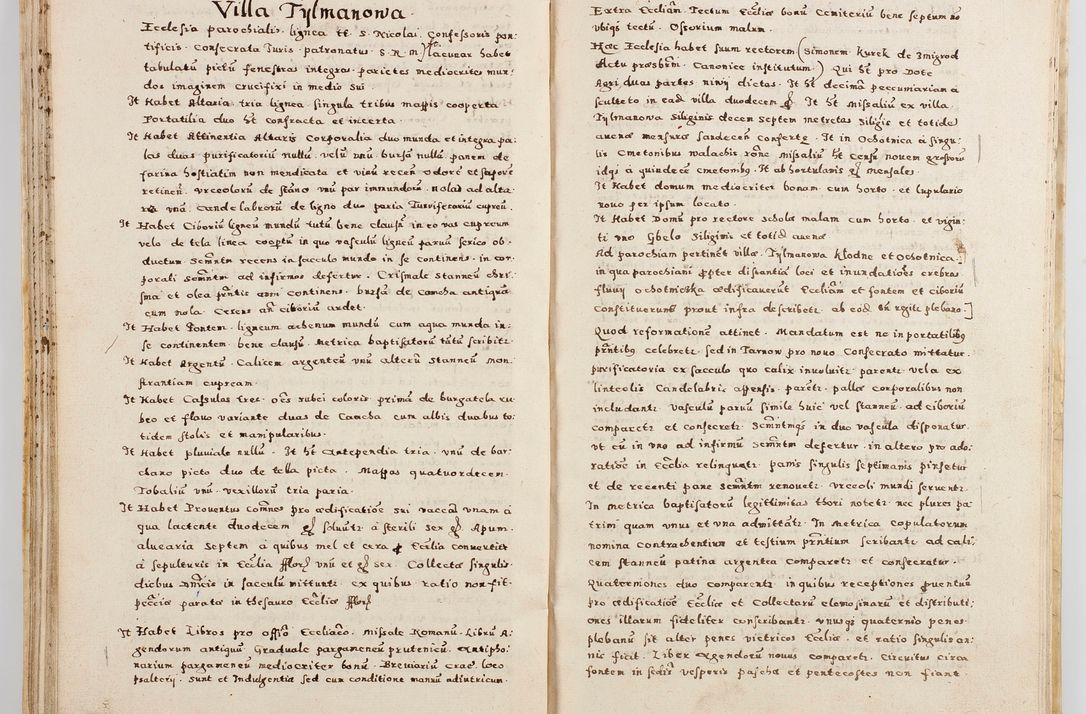 Villa Tylmanowa.
Ecclesia parochialis. lignea tt. S. Nicolai. Confessoris pon:
tificis. Consecrata Iuris. patronatus. S. R. M. lacuear habet
tabulatū pictū fenestras integras. parietes mediocrite mun:
dos imaginem crucifixi in medio sui.
It Habet Altaria tria lignea singula tribus mappis cooperta
Portatilia duo ħt confracta et incerta.
It Habet Attinentia Altaris Corporalia duo munda et integra pa:
las duas. purificatoriū nullū. velū vnū. bursā nullū. panem de
farina hostiatim non mendicata et vinū recen̄ odorē et sapore
retinen̄. vrceolorū de stāno vnū par immundorū. nolas ad alta:
re vnā. candelabrorū de ligno duo paria Turrificariū cupreū.
It Habet Ciboriū ligneū mundū tutū bene clausū. in eo vas cupreum
velo de tela linea cooptū in quo vasculū ligneū paruū serico ob:
ductum. Scm̄ntm recens in sacculo mundo in se continens. in cor:
porali scm̄ntm ad infirmos defertur. Crismale Stanneū chri:
sma et olea pn̄tis anni continens. bursa de camcha antiqua
cum nola. Cereus an̄ ciboriū ardet.
It Habet Fontem. ligneum acbenum mundū cum aqua munda in:
se continentem. bene clausū. Metrica baptisatorū tutū scribitr
It Habet Argentū. Calicem argenteū vnū alterū stanneū. mon:
strantiam cupream.
It Habet Casulas tres. oēs rubei coloris primā de burgatela ru:
beo et flauo variante duas de Camcha cum albis duabus to:
tidem stolis et manipularibus.
It Habet pluuiale nullū. It ħt Antependia tria. vnū de bar:
chano picto duo de tela picta. Mappas quatuordecem.
Tobaliū vnū. vexillorū tria paria.
It Habet Prouentus com̄nes pro ædificatioē sui vaccā vnam a
qua lactente duodecem gr̄ soluūt a sterili sex gr̄ Apum.
aluearia septem a quibus mel et cera p Ecclīa conuertitr
a sepulturis in Ecclīa fflor̄ vnū et gr̄ sex. Collecta singulis
diebus Dn̄icis in sacculū mittuntr ex quibus ratio non fit.
pecc̄ia parata in thesauro Ecclīæ fflor̄
It Habet Libros pro offi̅o Ecclīaco. Missale Romanū. Librū A:
gendorum antiquū. Graduale pargameneū prutenicū. Antipho:
narium pargameneū mediocriter bonū. Breuiariū Crac. loco
psalterij. sunt et Indulgentiæ sed cum conditione manuū adiutricum.
Extra Ecclīam. Tectum Ecclīæ bonū Cemiteriū bene septum nō
vbiq3 tectū. Ostorium malum.
Hæc Ecclesia habet suum rectorem (Simonem kurek de Zmigrod
Actu presbrm̄. Canonice institutum) Qui ħt pro Dote
Agri duas partes niwy dictas. It ħt decimā peccuniariam a
sculteto in ead villa duodecen̄ gr̄. It ħt Missaliū ex villa.
Tylmanowa Siliginis decem septem metretas siligis et totidē
auenæ mensuræ Sandecen̄ confertæ. It in Ochotnica a singu:
lis Cmetonibus walachis rōne missaliū ħt Censū nouem grossorū
idq3 a quindecē cmetonib9. It ab hortulanis gr̄ mensales.
It Habet domum mediocriter bonam. cum horto. et lupulario
nouo per ipsum locato.
It Habet Domū pro rectore scholæ malam cum horto. et vigin:
ti vno Gbelo siliginis et totid auenæ
Ad parochiam pertinēt villæ. Tylmanowa klodne et Ochotnica.
in qua parochiani propter distantiā loci et inundatioēs crebras
fluuij ochotnicska ædificauerūt Ecclīam et fontem et ciboriū
constituerunt prout infra describetr. ab eod ēn regitr plebano.]
Quod reformationē attinet. Mandatum est ne in portatilib9
pn̄tib9 celebretr. sed in Tarnow pro nouo consecrato mittatur.
purificatoria ex sacculo quo calix inuoluitr parentr vela ex
linteolis Candelabris appensis. parētr. pallæ corporalibus non
includantr. vasculū paruū simile huic vel stanneū. ad ciboriū
comparetr et consecretr. Scm̄ntmq3 in duo vascula disponatur.
vt cū in vno ad infirmū scm̄ntm defertur. in altero pro ado:
ratiōe in Ecclīa relinquatr. panis singulis septimanis pinsetur
et de recenti pane scm̄ntm renouetr. vrceoli mundi seruentr.
In metrica baptisatorū legittimitas thori notetr. nec plures pa:
trini quam vnus et vna admittātr. In metrica copulatorum
nomina contrahentium et testium pn̄tium scribantr. ad cali:
cem stanneū patina argentea comparetr et consecratur.
Quaterniones duo comparentr. in quibus receptiones prouentuū
pro ædificatiōe Ecclīæ et Collectarū elemosinarū et distributi:
ones illarum fideliter conscribantr. vnusq3 quaternio penes
plebanū sit alter penes vietricos Ecclīæ. et ratio singulis an:
nis fiat. Liber Agendorū nouus comparetr. Circuitus circa
fontem in sedis vesperis paschæ et pentecostes non fiant.